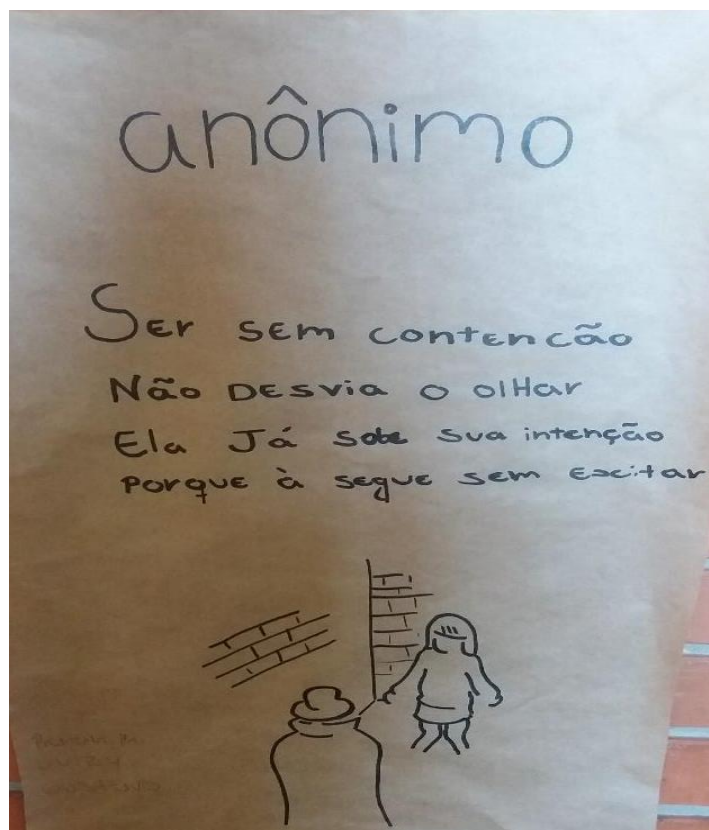 anônimo
Ser sem contencão
Não Desvia o olHar
Ela Já sabe sua intenção
Porque à segue sem Excitar